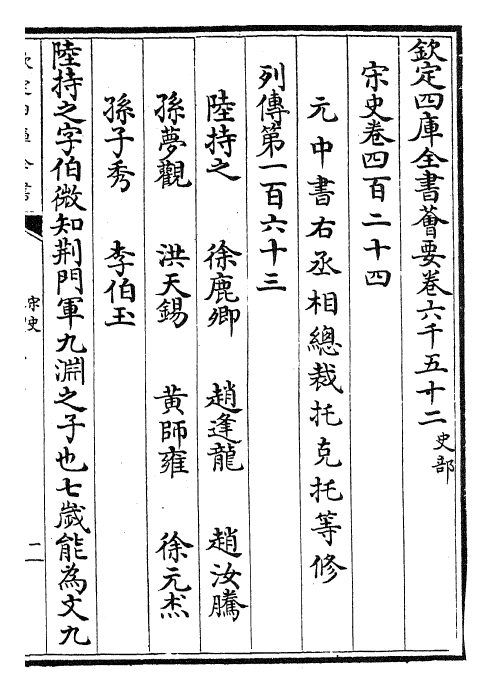 欽定四庫全書薈要卷六千五十二 史部
宋史卷四百二十四
元中書右丞相總裁托克托等修
列傳第一百六十三
陸持之 徐鹿卿 趙逢龍 趙汝騰
孫夢觀 洪天錫 黃師雍 徐元杰
孫子秀 李伯玉
陸持之字伯微知荆門軍九淵之子也七歲能為文九
宋史